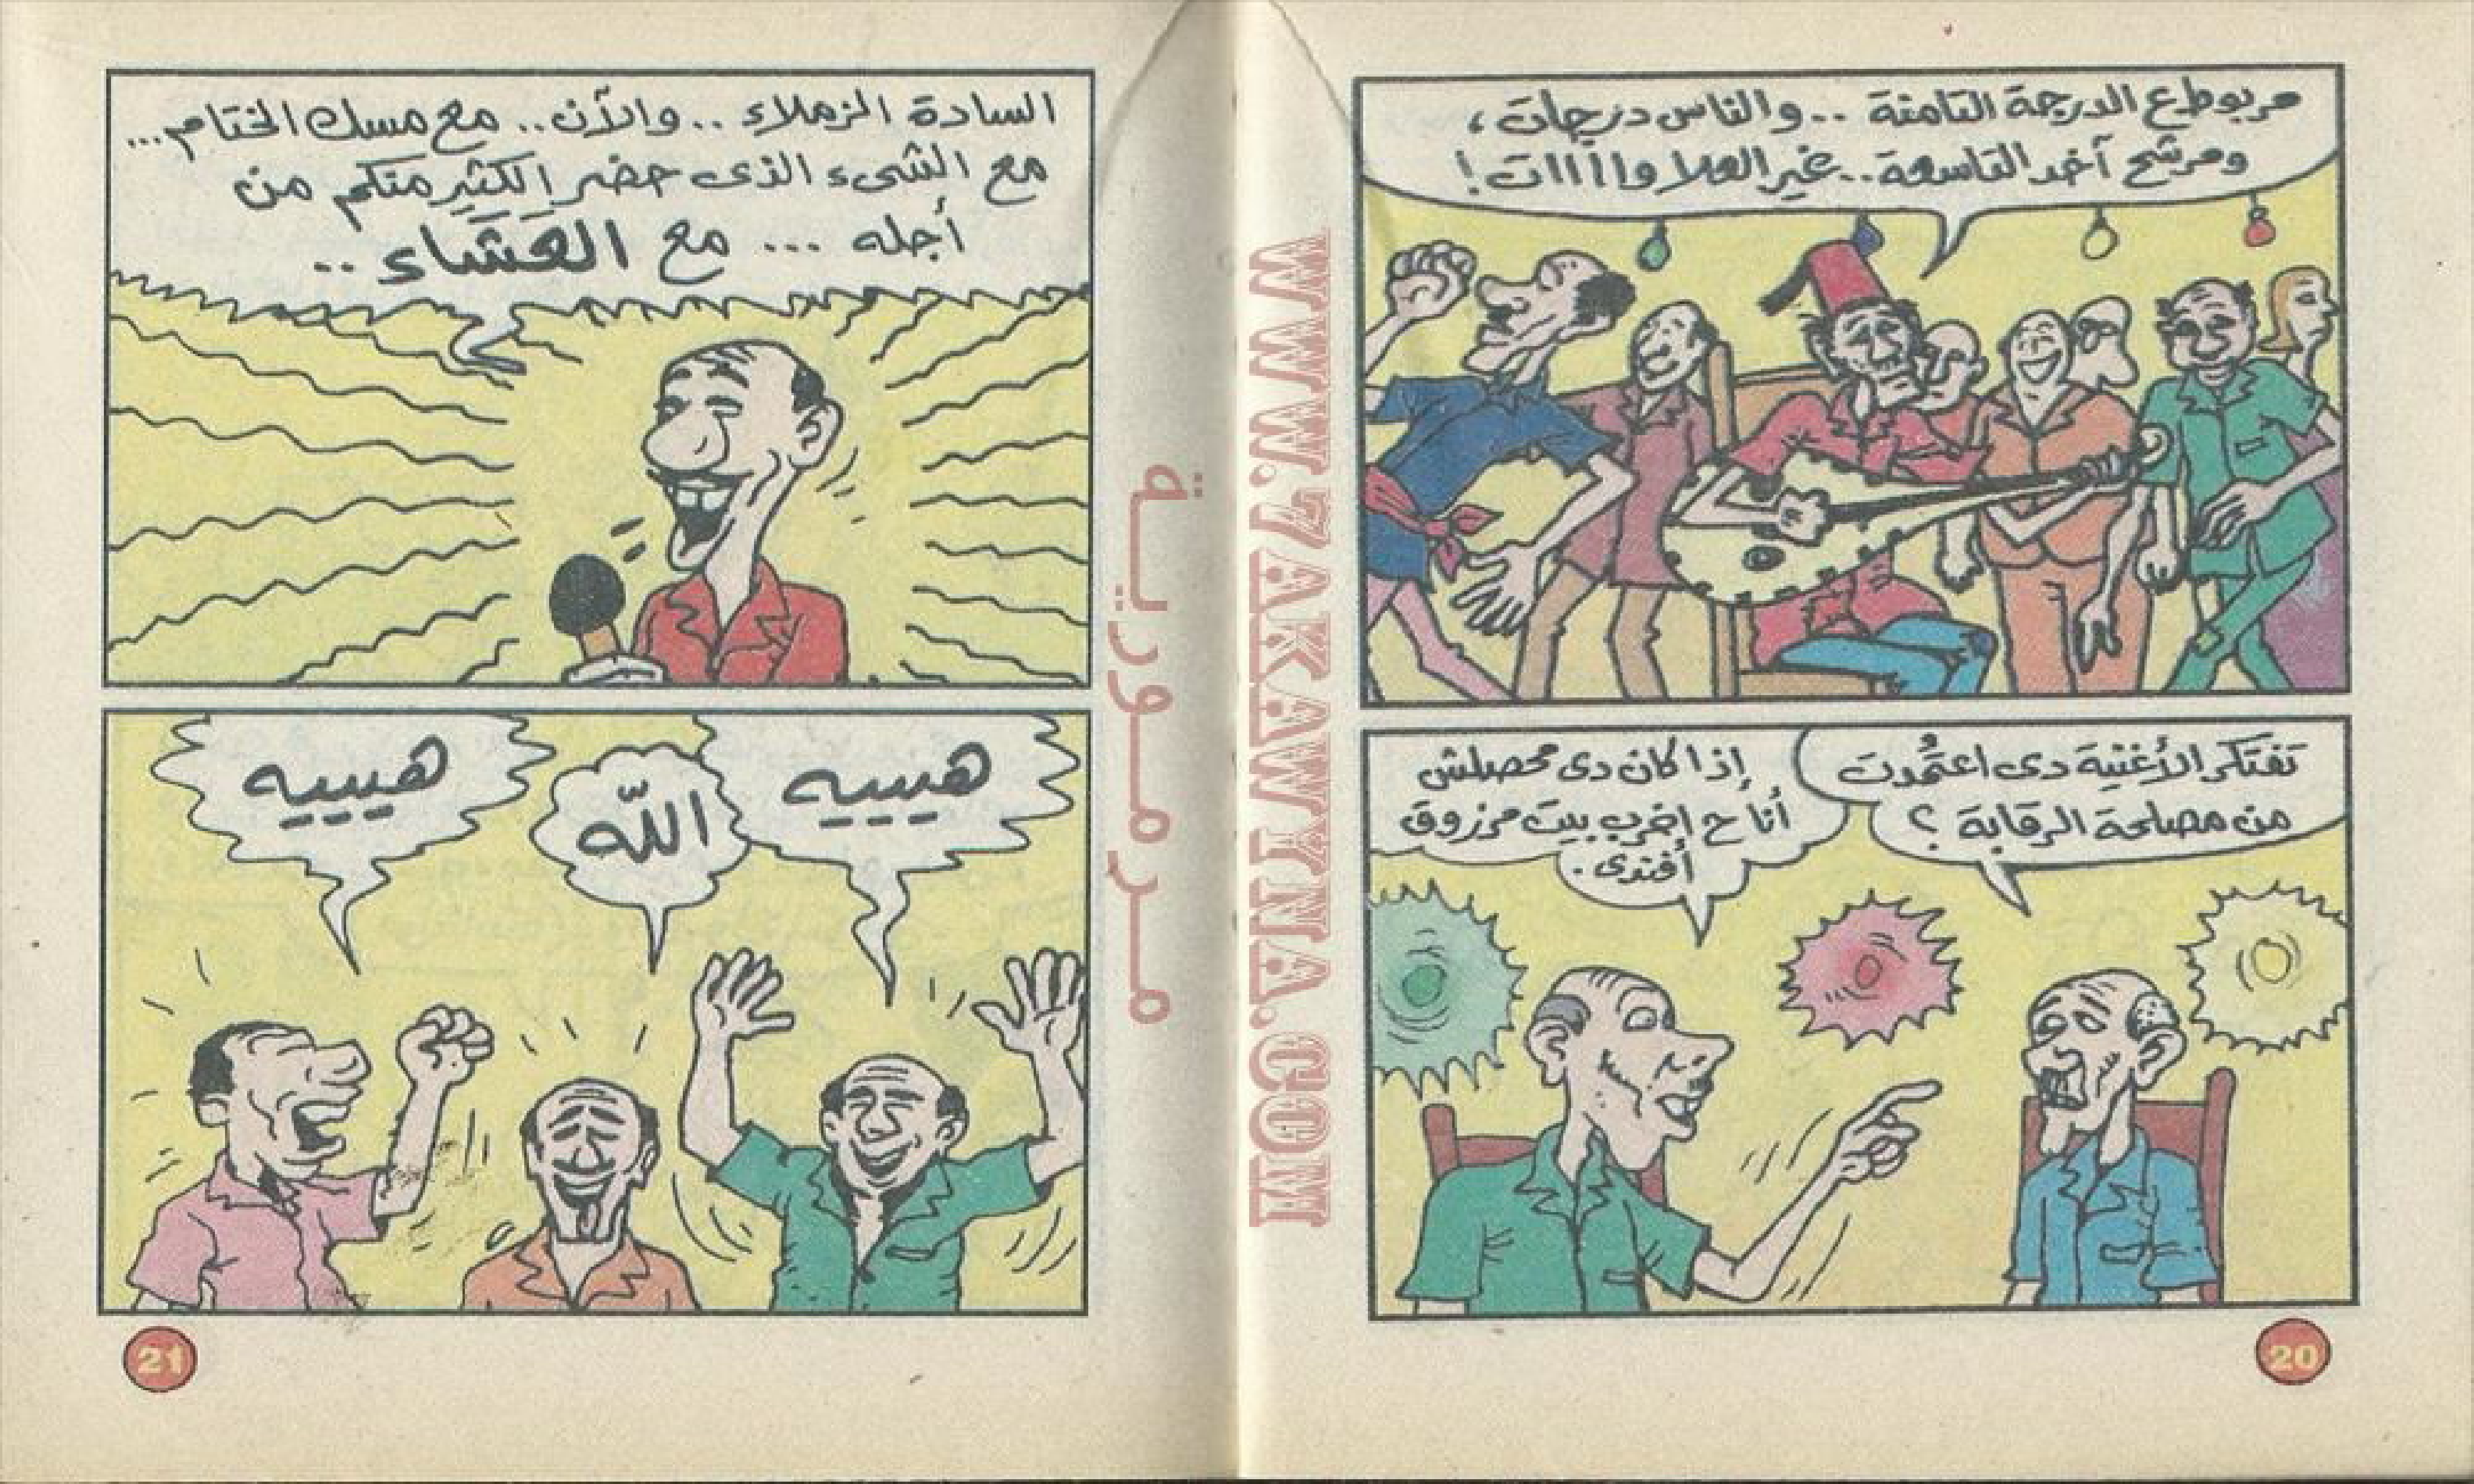 مربوط ع الدرجة التامنة .. والناس درجات ،
ومرشح آخد التاسعة .. غير العلاواااات !
تفتكر الأغنية دى اعتمُدت
من مصلحة الرقابة ؟
إذا كان دى محصلش
أنا ح اخرب بيت مرزوق
أفندى .
20
السادة الزملاء .. والآن .. مع مسك الختام ...
مع الشىء الذى حضر الكثير منكم من
أجله ... مع العَشَاء ..
هيييه
اللّه
هيييه
21
مرمورية
WWW.7AKAWYINA.COM